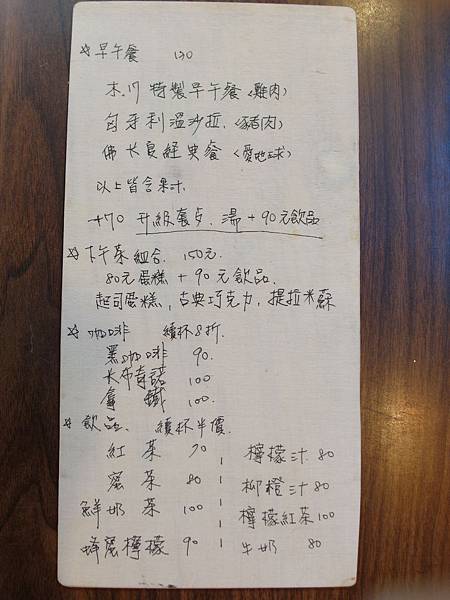 ☆早午餐 130
木.川 特製早午餐〈雞肉〉
匈牙利溫沙拉.〈豬肉〉
佛卡夏經典餐〈愛地球〉
以上皆含果汁.
+70 升級套餐. 湯 + 90元飲品
☆下午茶組合. 150元.
80元蛋糕 + 90元飲品.
起司蛋糕, 古典巧克力, 提拉米蘇
☆咖啡 續杯8折.
黑咖啡 90.
卡布奇諾 100
拿鐵 100.
☆飲品. 續杯半價.
紅茶 70 檸檬汁 80
蜜茶 80 柳橙汁 80
鮮奶茶 100 檸檬紅茶 100
蜂蜜檸檬 90 牛奶 80